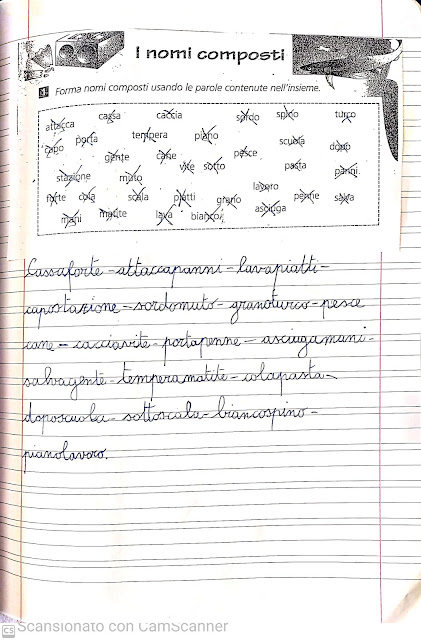 I nomi composti
1 Forma nomi composti usando le parole contenute nell'insieme.
attacca cassa caccia sordo spino turco
capo porta tempera piano scuola dopo
gente cane vite sotto pesce pasta panni
stazione muto lavoro
forte cola scala piatti grano penne salva
mani matite lava bianco asciuga
Cassaforte - attaccapanni - lavapiatti -
capostazione - sordomuto - granoturco - pesce
cane - cacciavite - portapenne - asciugamani -
salvagente - temperamatite - colapasta -
doposcuola - sottoscala - biancospino -
pianolavoro.
CS Scansionato con CamScanner